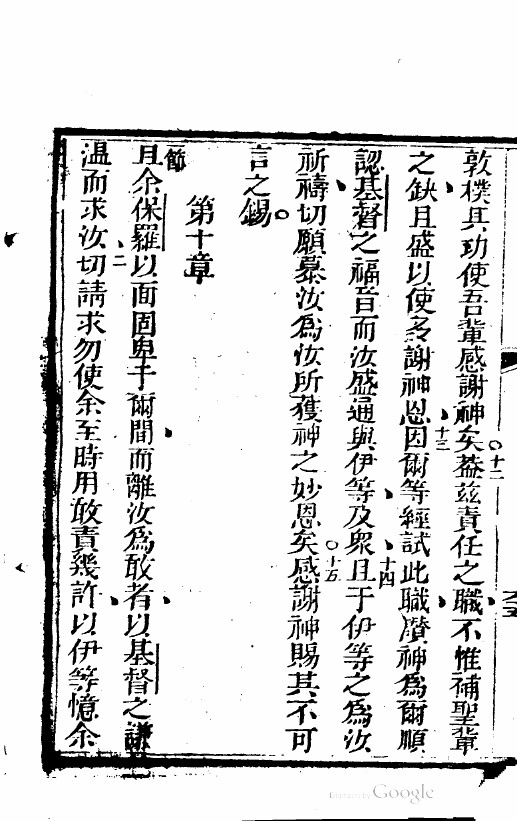 敦樸其功使吾輩感謝神矣○十二蓋茲責任之職不惟補聖輩
之缺且盛以使多謝神恩十三因爾等經試此職讚神為爾順
認基督之福音而汝盛通與伊等及衆十四且于伊等之為汝
祈禱切願慕汝為汝所獲神之妙恩矣○十五感謝神賜其不可
言之錫○
第十章
節
且余保羅以面固卑于爾間而離汝為敢者以基督之謙
温而求汝二切請求勿使余至時用敢責幾許以伊等憶余
Digitized by Google